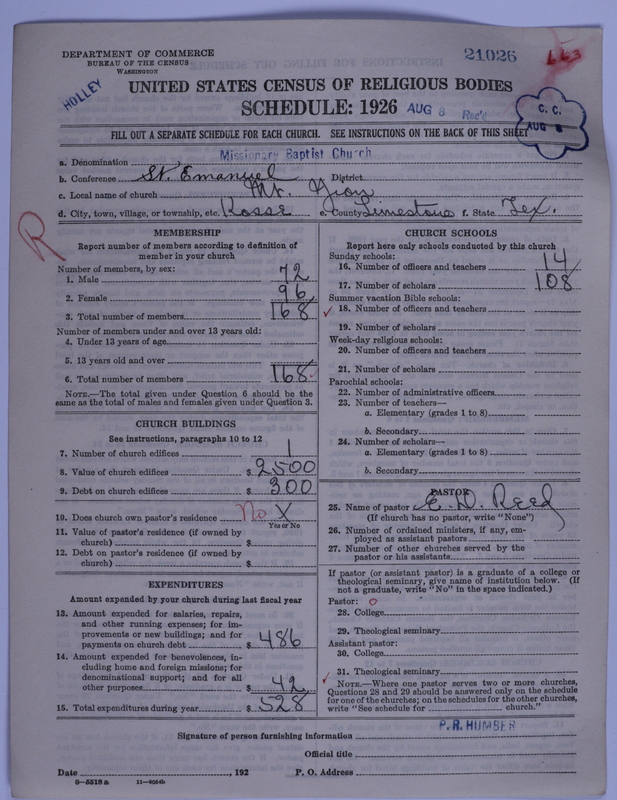 DEPARTMENT OF COMMERCE
BUREAU OF THE CENSUS
WASHINGTON
21026
113
HOLLEY
UNITED STATES CENSUS OF RELIGIOUS BODIES
SCHEDULE: 1926
AUG 8 Rec'd
C. C.
AUG 8
FILL OUT A SEPARATE SCHEDULE FOR EACH CHURCH. SEE INSTRUCTIONS ON THE BACK OF THIS SHEET
a. Denomination Missionary Baptist Church
b. Conference St. Emanuel District
c. Local name of church Mt. Zion
d. City, town, village, or township, etc. Kosse e. County Limestone f. State Tex.
R
MEMBERSHIP
Report number of members according to definition of
member in your church
Number of members, by sex:
1. Male 72
2. Female 96
3. Total number of members 168
Number of members under and over 13 years old:
4. Under 13 years of age
5. 13 years old and over
6. Total number of members 168
NOTE.—The total given under Question 6 should be the
same as the total of males and females given under Question 3.
CHURCH BUILDINGS
See instructions, paragraphs 10 to 12
7. Number of church edifices 1
8. Value of church edifices $ 2500
9. Debt on church edifices $ 300
10. Does church own pastor's residence No X
Yes or No
11. Value of pastor's residence (if owned by
church) $
12. Debt on pastor's residence (if owned by
church) $
EXPENDITURES
Amount expended by your church during last fiscal year
13. Amount expended for salaries, repairs,
and other running expenses; for im-
provements or new buildings; and for
payments on church debt $ 486
14. Amount expended for benevolences, in-
cluding home and foreign missions; for
denominational support; and for all
other purposes $ 42
15. Total expenditures during year $ 528
CHURCH SCHOOLS
Report here only schools conducted by this church
Sunday schools:
16. Number of officers and teachers 14
17. Number of scholars 108
Summer vacation Bible schools:
18. Number of officers and teachers
19. Number of scholars
Week-day religious schools:
20. Number of officers and teachers
21. Number of scholars
Parochial schools:
22. Number of administrative officers
23. Number of teachers—
a. Elementary (grades 1 to 8)
b. Secondary
24. Number of scholars—
a. Elementary (grades 1 to 8)
b. Secondary
PASTOR
25. Name of pastor E. D. Reed
(If church has no pastor, write "None")
26. Number of ordained ministers, if any, em-
ployed as assistant pastors
27. Number of other churches served by the
pastor or his assistants
If pastor (or assistant pastor) is a graduate of a college or
theological seminary, give name of institution below. (If
not a graduate, write "No" in the space indicated.)
Pastor: O
28. College
29. Theological seminary
Assistant pastor:
30. College
31. Theological seminary
NOTE.—Where one pastor serves two or more churches,
Questions 28 and 29 should be answered only on the schedule
for one of the churches; on the schedules for the other churches,
write "See schedule for church."
Signature of person furnishing information P. R. HUMBER
Official title
Date , 192 P. O. Address
8—5518 a 11—9054b